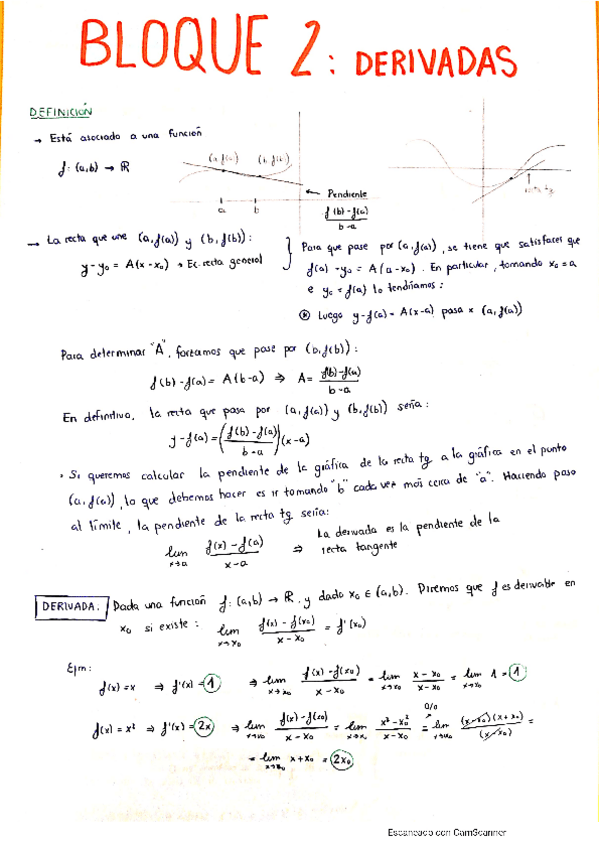 BLOQUE 2: DERIVADAS
DEFINICIÓN
→ Está asociado a una función
f: (a,b) → ℝ
(a,f(a)) (b,f(b))
a b
← Pendiente
f(b)-f(a) / b-a
→ La recta que une (a,f(a)) y (b,f(b)):
y-y₀ = A(x-x₀) → Ec. recta general
} Para que pase por (a,f(a)), se tiene que satisfacer que
f(a)-y₀ = A(a-x₀). En particular, tomando x₀=a
e y₀=f(a) lo tendríamos:
⊛ Luego y-f(a) = A(x-a) pasa x (a,f(a))
Para determinar "A", forzamos que pase por (b,f(b)):
f(b)-f(a) = A(b-a) ⇒ A = f(b)-f(a) / b-a
En definitiva, la recta que pasa por (a,f(a)) y (b,f(b)) sería:
y-f(a) = (f(b)-f(a) / b-a)(x-a)
• Si queremos calcular la pendiente de la gráfica de la recta tg a la gráfica en el punto
(a,f(a)), lo que debemos hacer es ir tomando "b" cada vez más cerca de "a". Haciendo paso
al límite, la pendiente de la recta tg. sería:
lim x→a f(x)-f(a) / x-a ⇒ La derivada es la pendiente de la
recta tangente
DERIVADA. Dada una función f: (a,b) → ℝ, y dado x₀ ∈ (a,b). Diremos que f es derivable en
x₀ si existe: lim x→x₀ f(x)-f(x₀) / x-x₀ = f'(x₀)
Ejm:
f(x)=x ⇒ f'(x)=1 ⇒ lim x→x₀ f(x)-f(x₀) / x-x₀ = lim x→x₀ x-x₀ / x-x₀ = lim x→x₀ 1 = 1
0/0
f(x)=x² ⇒ f'(x)=2x ⇒ lim x→x₀ f(x)-f(x₀) / x-x₀ = lim x→x₀ x²-x₀² / x-x₀ = lim x→x₀ (x-x₀)(x+x₀) / (x-x₀) =
= lim x→x₀ x+x₀ = 2x₀
Escaneado con CamScanner